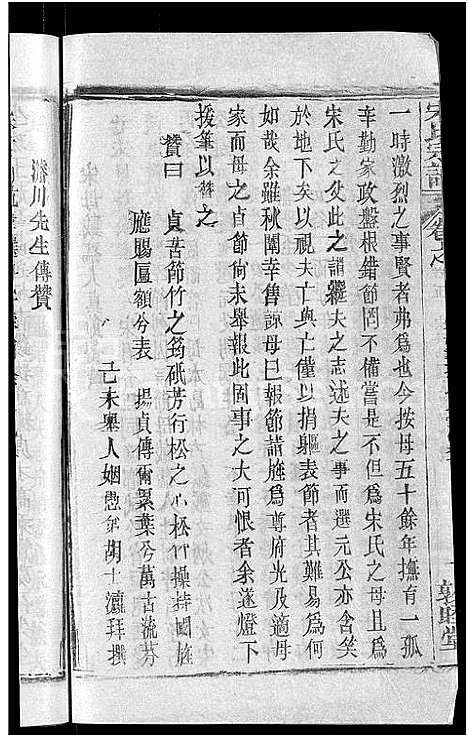 宋氏宗譜
卷之
敦睦堂
一時激烈之事賢者弗爲也今按母五十餘年撫有一孤
辛勤家政盤根錯節罔不備嘗是不但爲宋氏之母且爲
宋氏之父此之謂繼夫之志述夫之事而選元公亦含笑
於地下矣以視夫亡與亡僅以捐軀表節者其難易爲何
如哉余雖秋闈幸售諏母曰報節請旌爲尊府光及適母
家而知貞節尙未舉報此固事之大可恨者余遂燈下
援筆以贊之
贊曰 貞苦節竹之筠砥芳行松之心松竹操持國旌
應賜匾額兮表 揚貞傳爾累葉兮萬古流芬
己未舉人姻愚弟胡士瀛拜撰
濟川先生傳贊